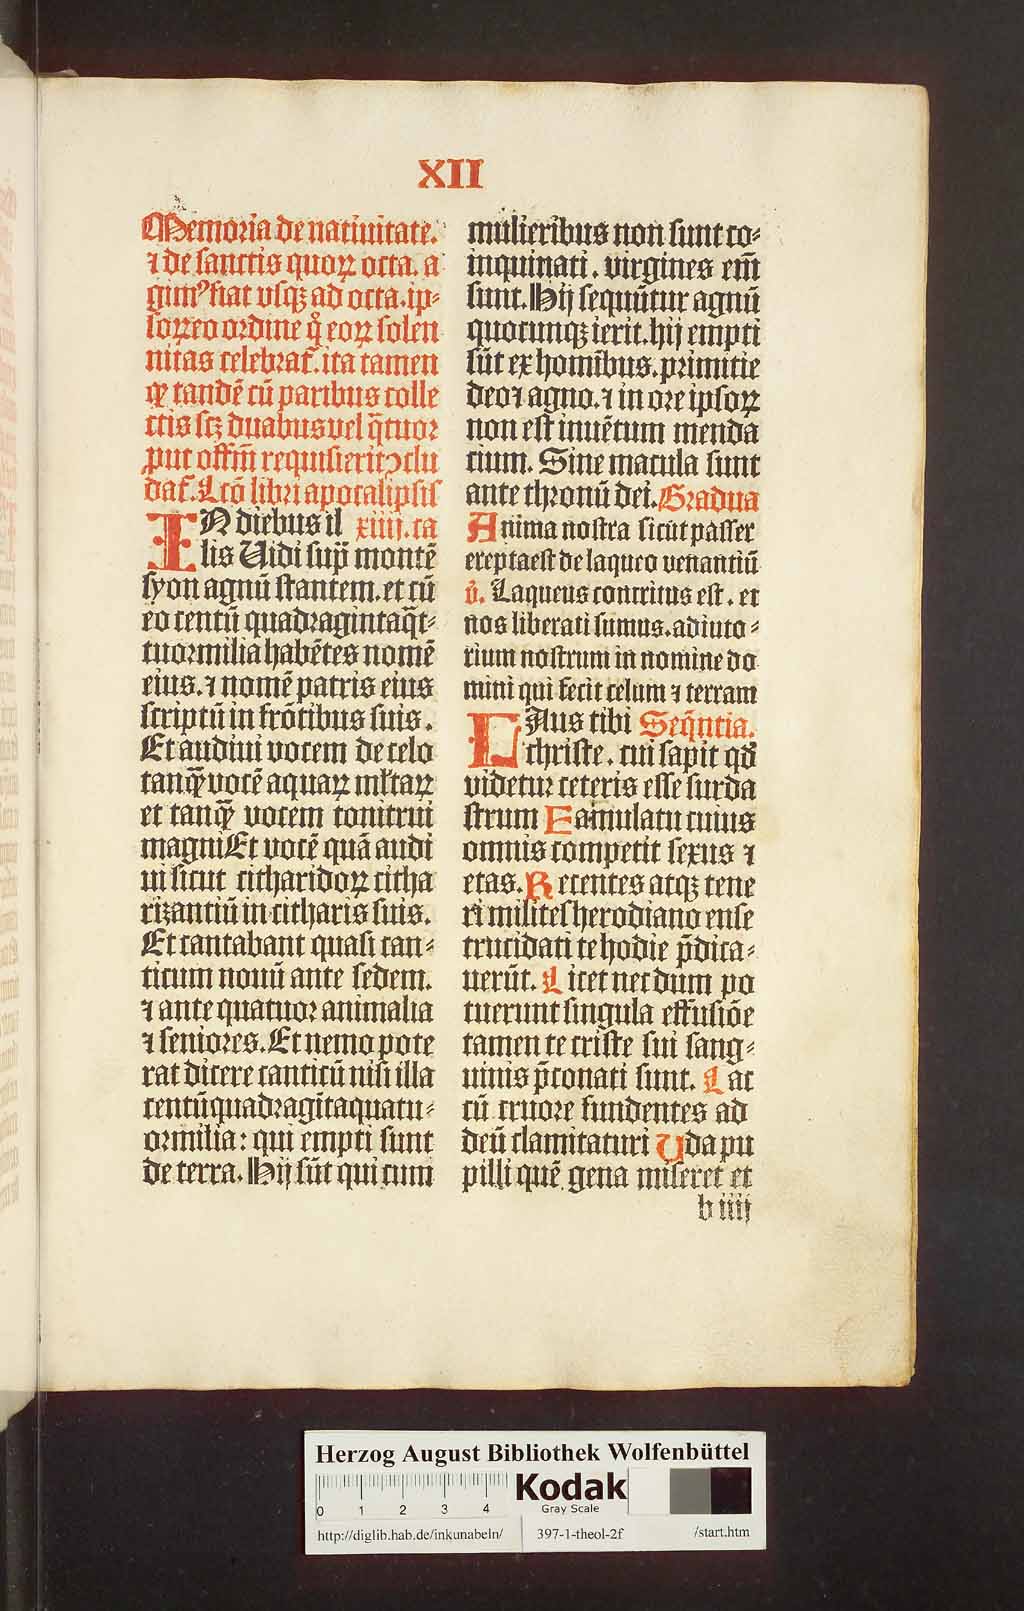 XII
Memoria de natiuitate.
⁊ de sanctis quoꝝ octa. a
gimꝰ fiat vsqꝫ ad octa. ip⸗
soꝝ eo ordine q̇ eoꝝ solen
nitas celebrat̃. ita tamen
ꝙ tandē cū paribus colle
ctis scꝫ duabus vel q̄tuor
ꝓut offm̄ requisierit ↄclu
dat̃. Lctō libri apocalipsis
IN diebus il xiiij. ca
lis Uidi sup̄ montē
syon agnū stantem. et cū
eo centū quadragintaq̄t⸗
tuormilia habētes nomē
eius. ⁊ nomē patris eius
scriptū in frōtibus suis.
Et audiui vocem de celo
tanqȝ̄ vocē aquaꝝ ml̄taꝝ
et tanqȝ̄ vocem tonitrui
magni Et vocē quā audi
ui sicut citharidoꝝ citha
rizantiū in citharis suis.
Et cantabant quasi can⸗
ticum nouū ante sedem.
⁊ ante quatuor animalia
⁊ seniores. Et nemo pote
rat dicere canticū nisi illa
centūquadragītaquatu⸗
ormilia: qui empti sunt
de terra. Hij sūt qui cum
mulieribus non sunt co⸗
inquinati. virgines em̄
sunt. Hij sequūtur agnū
quocunqꝫ ierit. hij empti
sūt ex homībus. primitie
deo ⁊ agno. ⁊ in ore ipsoꝝ
non est inuētum menda
cium. Sine macula sunt
ante thronū dei. Gradua
Anima nostra sicut passer
erepta est de laqueo venantiū
v̇. Laqueus contritus est. et
nos liberati sumus. adiuto⸗
rium nostrum in nomine do
mini qui fecit celum ⁊ terram
LAus tibi Seq̄ntia.
christe. cui sapit qđ
videtur ceteris esse surda
strum Eamulatu cuius
omnis competit sexus ⁊
etas. Recentes atqꝫ tene
ri milites herodiano ense
trucidati te hodie p̄dica⸗
uerūt. Licet nec dum po
tuerunt singula effusiōe
tamen te criste sui sang⸗
uinis p̄conati sunt. Lac
cū cruore fundentes ad
deū clamitaturi Uda pu
pilli quē gena miseret et
b iiij
Herzog August Bibliothek Wolfenbüttel
0 1 2 3 4
Kodak
Gray Scale
http://diglib.hab.de/inkunabeln/ 397-1-theol-2f /start.htm